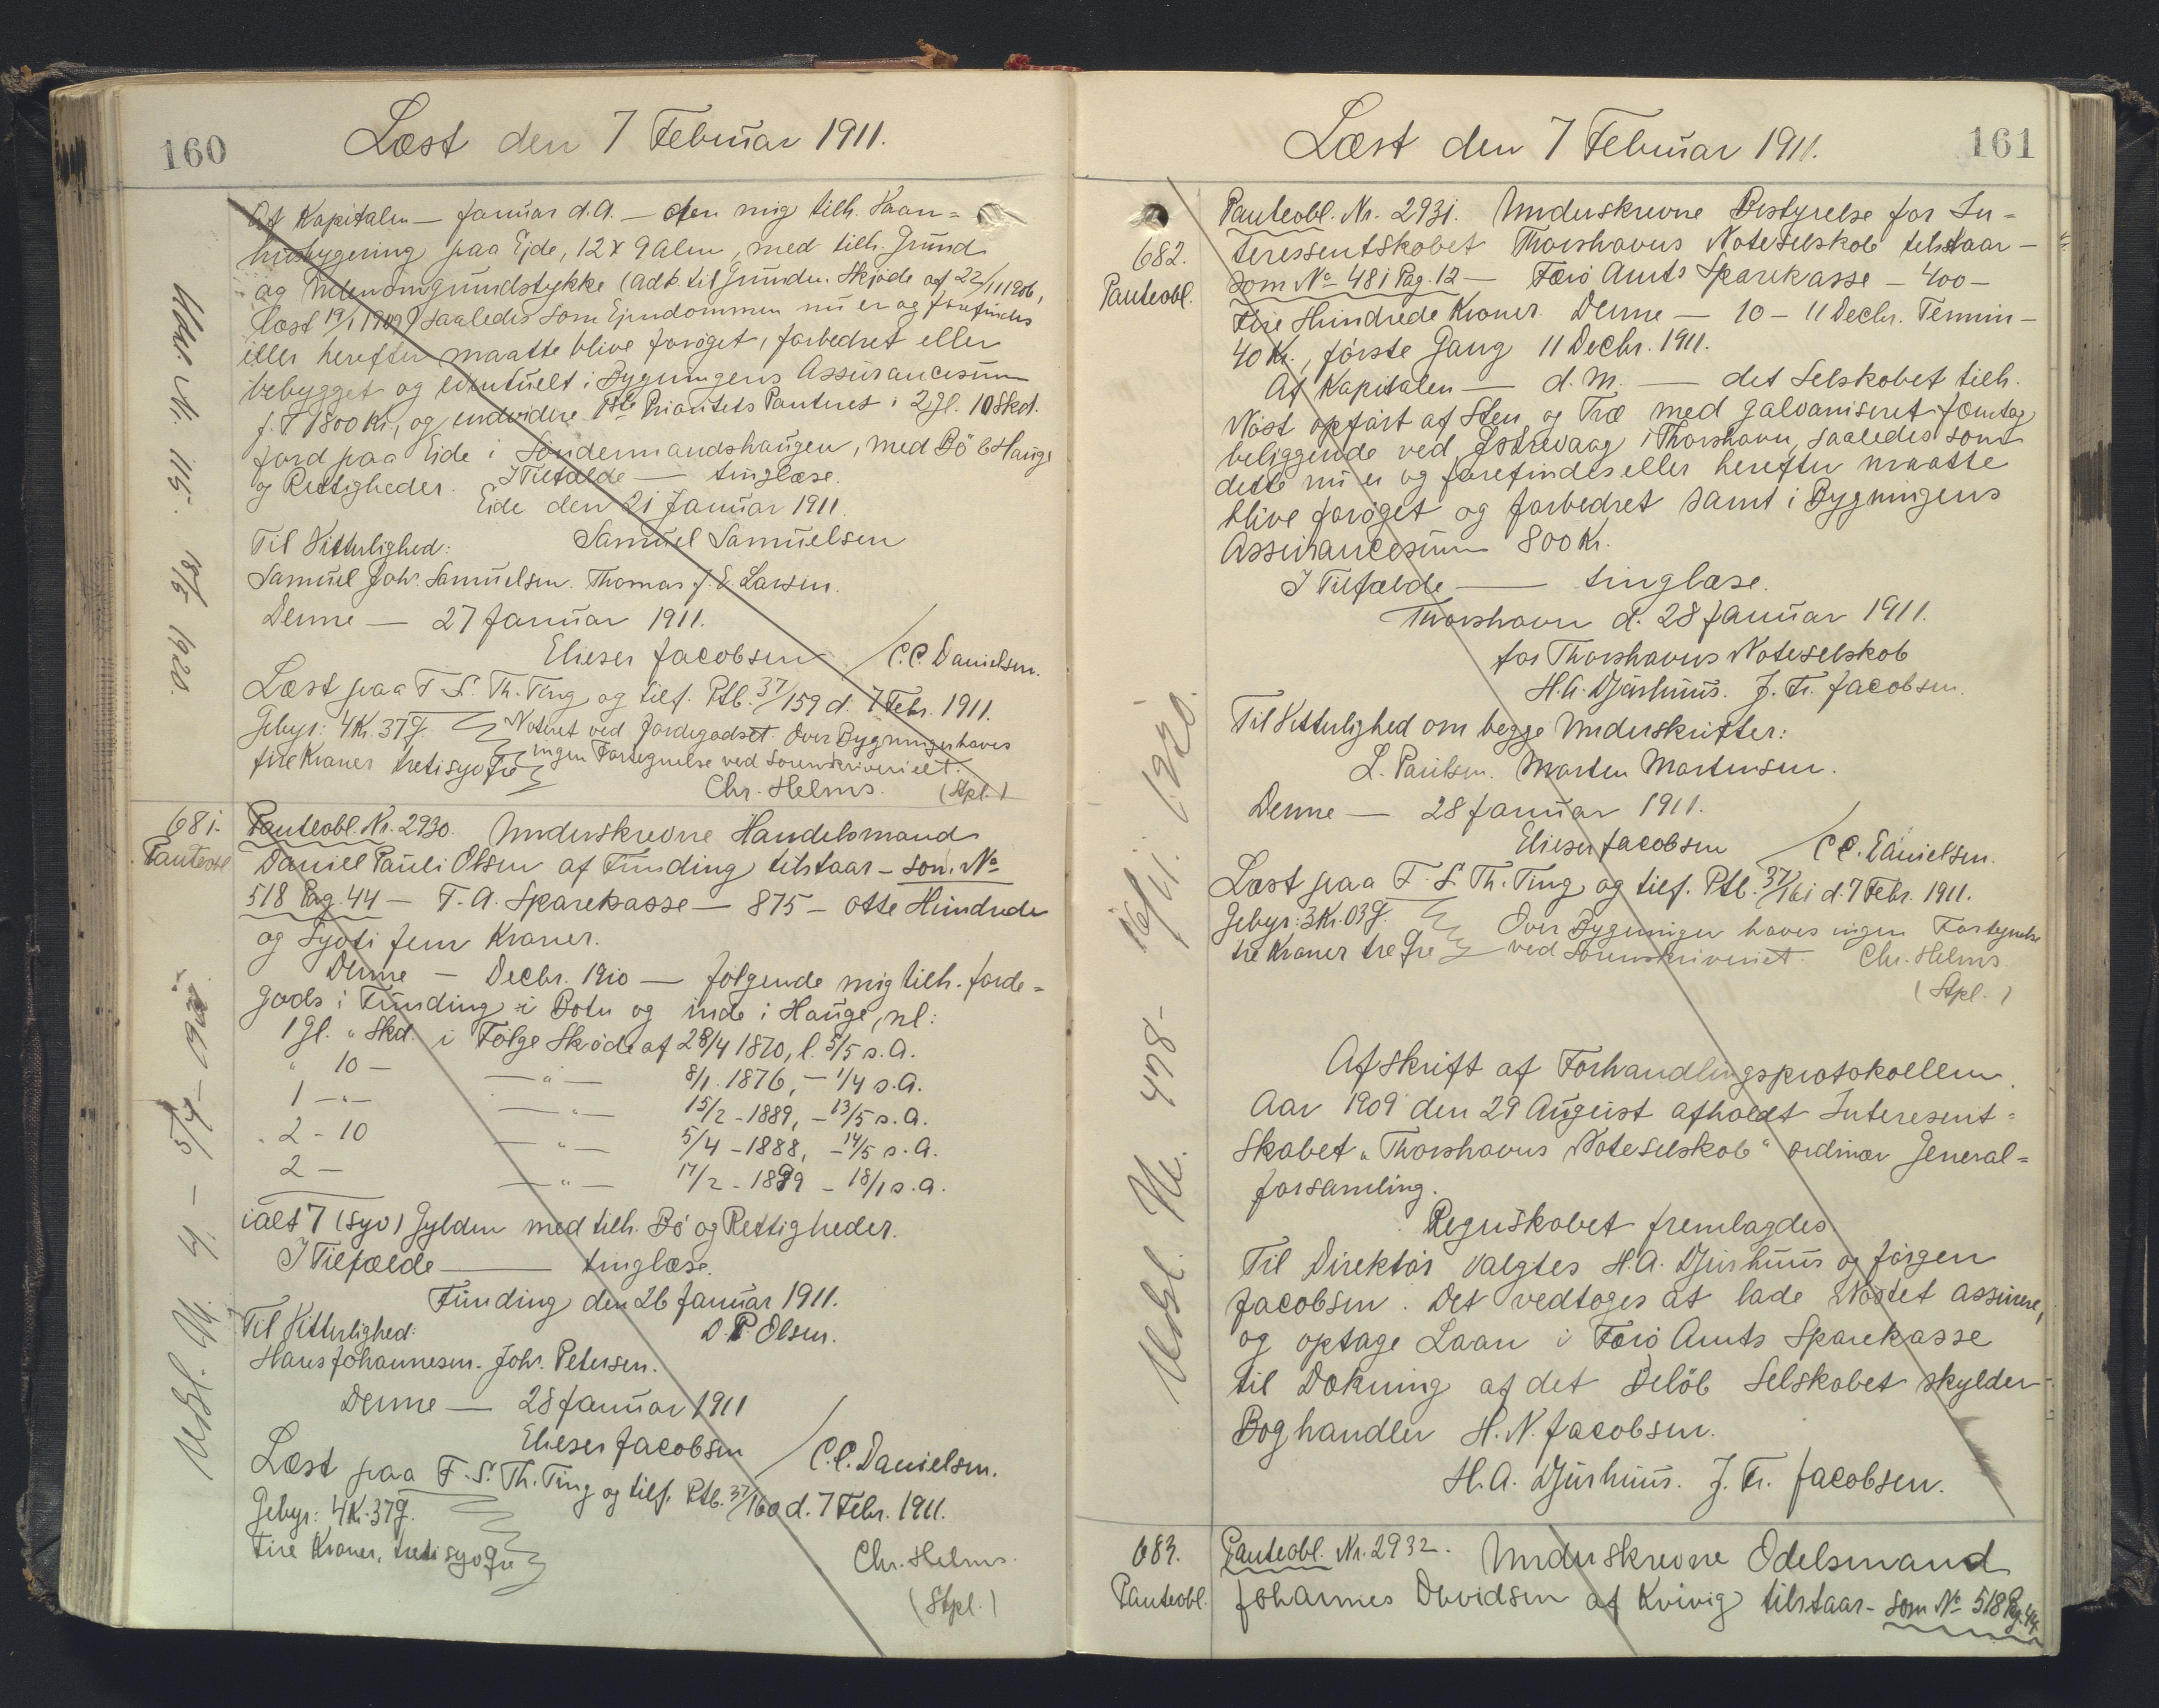 160
Læst den 7 Februar 1911.
Af Kapitalen — Januar d.A. — den mig tilh. Vaan=
husbygning paa Ejde, 12 x 9 Alen, med tilh. Grund
og udenomgrundstykke (Adk. til Grunden Skjøde af 22/11 1906,
læst 19/1 1909) saaledes som Ejendommen nu er og forefindes
eller herefter maatte blive forøget, forbedret eller
bebygget og eventuelt i Bygningens Assurancesum
f. T. 1800 Kr., og endvidere 1ste Prioritets Panteret i 2 Gl. 10 Skd.
Jord paa Eide i Søndermandshaugen, med Bø & Hauge
og Rettigheder. I Tilfælde — tinglæse.
Eide den 21 Januar 1911.
Til Vitterlighed: Samuel Samuelsen
Samuel Joh. Samuelsen. Thomas J. E. Larsen.
Denne — 27 Januar 1911.
Elieser Jacobsen / C.C. Danielsen.
Læst paa F. S. Th. Ting og tilf. Ptb. 37/159 d. 7 Febr. 1911.
Gebyr: 4 Kr. 37 Ø. Noteret ved Jordegodset. Over Bygninger haves
fire Kroner tretisyv Øre ingen Fortegnelse ved Sorenskriveriet.
Chr. Helms. (Stpl.)
Udsl. Nr. 115. 18/5 1920.
681.
Panteobl.
Panteobl. Nr. 2930. Underskrevne Handelsmand
Daniel Pauli Olsen af Funding tilstaar — som No
518 Pag. 44 — F. A. Sparekasse — 875 — otte Hundrede
og Syvti fem Kroner.
Denne — Decbr. 1910 — følgende mig tilh. Jorde=
gods i Funding i Botn og inde i Hauge, nl:
1 Gl. " Skd. i Følge Skøde af 28/4 1870, l. 5/5 s.A.
" 10 — — " — 8/1. 1876, — 1/4 s.A.
1 — " — — " — 15/2 - 1889, — 13/5 s.A.
2 - 10 — " — 5/4 - 1888, — 14/5 s.A.
2 — — " — 17/2 - 1899 — 18/1 s.A.
ialt 7 (syv) Gylden med tilh. Bø og Rettigheder.
I Tilfælde — tinglæse.
Funding den 26 Januar 1911.
Til Vitterlighed: D. P. Olsen.
Hans Johannesen. Joh. Petersen.
Denne — 28 Januar 1911
Elieser Jacobsen / C.C. Danielsen.
Læst paa F. S. Th. Ting og tilf. Ptb. 37/160 d. 7 Febr. 1911.
Gebyr: 4 Kr. 37 Ø.
fire Kroner, tretisyv Øre
Chr. Helms.
(Stpl.)
161
Læst den 7 Februar 1911.
682.
Panteobl.
Panteobl. Nr. 2931. Underskrevne Bestyrelse for In=
teressentskabet Thorshavns Noteselskab tilstaar —
som No 481 Pag. 12 — Færø Amts Sparekasse — 400 —
Fire Hundrede Kroner. Denne — 10 — 11 Decbr. Termin —
40 Kr., første Gang 11 Decbr. 1911.
Af Kapitalen — d. M. — det Selskabet tilh.
Nøst opført af Sten og Træ med galvaniseret Jærntag
beliggende ved Østrevaag i Thorshavn, saaledes som
dette nu er og forefindes eller herefter maatte
blive forøget og forbedret samt i Bygningens
Assurancesum 800 Kr.
I Tilfælde — tinglæse.
Thorshavn d. 28 Januar 1911.
for Thorshavns Noteselskab
H.A. Djurhuus. J. Fr. Jacobsen.
Til Vitterlighed om begge Underskrifter:
L. Paulsen. Morten Mortensen.
Denne — 28 Januar 1911.
Elieser Jacobsen / C C. Danielsen.
Læst paa F. S. Th. Ting og tilf. Ptb. 37/161 d. 7 Febr. 1911.
Gebyr: 3 Kr. 03 Ø. Over Bygningen haves ingen Fortegnelse
tre Kroner tre Øre ved Sorenskriveriet. Chr. Helms.
(Stpl.)
Afskrift af Forhandlingsprotokollen.
Aar 1909 den 29 August afholdt Interesent=
skabet "Thorshavns Noteselskab" ordinær General=
forsamling.
Regnskabet fremlagdes
Til Direktør valgtes H.A. Djurhuus og Jørgen
Jacobsen. Det vedtoges at lade Nøstet assurere,
og optage Laan i Færø Amts Sparekasse
til Dækning af det Beløb Selskabet skylder
Boghandler H. N. Jacobsen.
H.A. Djurhuus. J. Fr. Jacobsen.
683.
Panteobl.
Panteobl. Nr. 2932. Underskrevne Odelsmand
Johannes Davidsen af Kvivig tilstaar — som No 518 Pg. 44